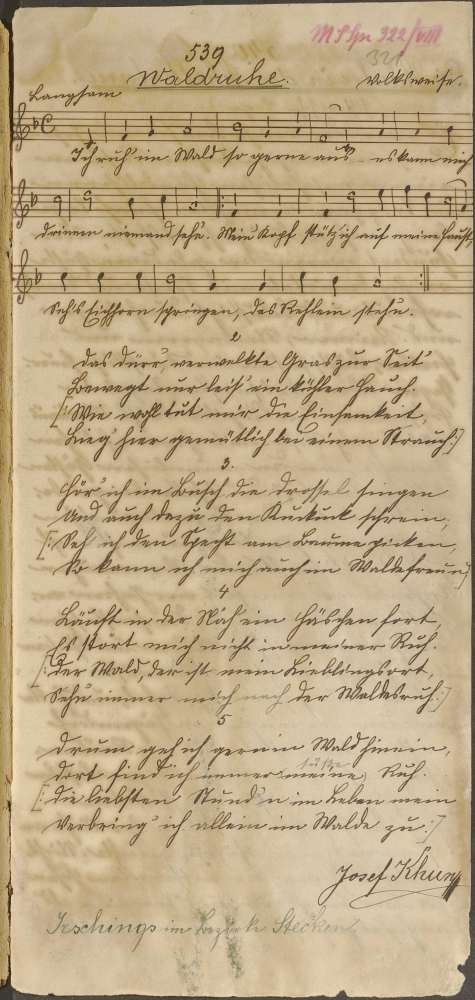 MS Hn 322/VIII
539
321
Waldruhe.
Volksweise.
Langsam
Ich ruh' im Wald so gerne aus es kann mich
drinnen niemand sehn. Mein Kopf stütz ich auf meine Faust,
Seh's Eichhorn springen, das Rehlein stehn.
2
Das dürr, verwelkte Gras zur Seit'
Bewegt nur leis' ein kühler Hauch.
[: Wie wohl tut mir die Einsamkeit,
Lieg' hier gemütlich bei einem Strauch :]
3.
Hör' ich im Busch die Drossel singen
Und auch dazu den Kuckuck schrein,
[: Seh ich den Specht am Baume picken,
So kann ich mich auch im Walde freun :]
4
Läuft in der Näh ein Häschen fort,
Es stört mich nicht in meiner Ruh.
[: Der Wald, der ist mein Lieblingsort,
Sehn immer mich nach der Waldesruh :]
5
Drum geh ich gern in Wald hinein,
Dort find ich immer meine Ruh.
[: Die liebsten Stunden im Leben mein
Verbring' ich allein im Walde zu :]
Josef Khun
im Bezirke Stecken